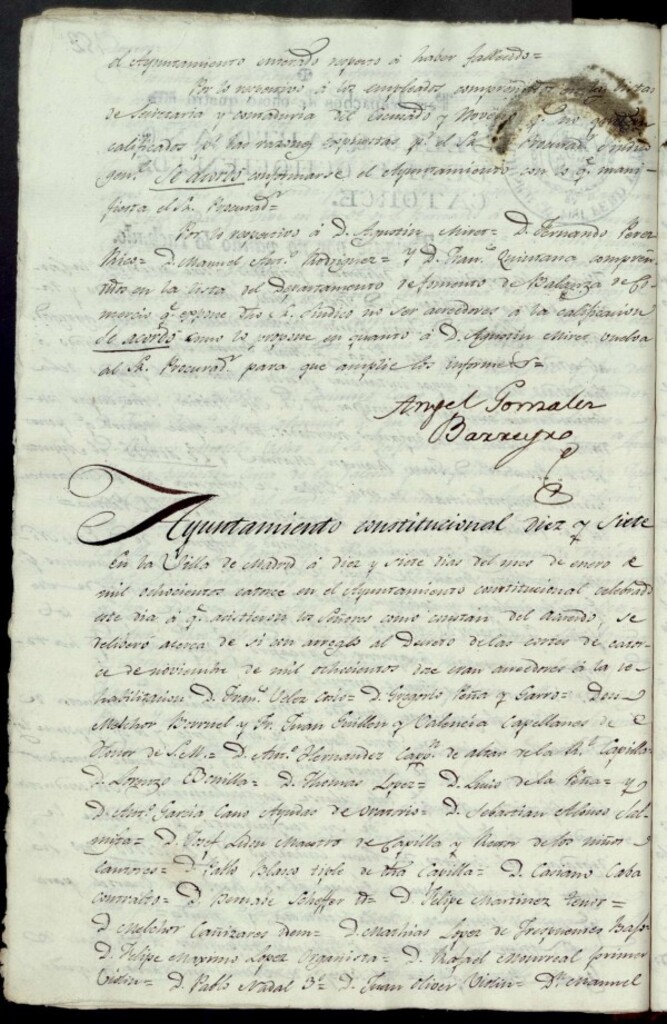 el Ayuntamiento enterado respeto á haber fallecido=
Por lo respectivo á los empleados comprendidos en las listas
de Secretaria y contaduria del
calificados por las razones expuestas pr. el Sr. Procurad.
gen. Se acordó conformarse el Ayuntamiento con lo q.e mani-
fiesta el Sr. Procurad.r
Por lo respectivo á D. Agustin Miret= D. Fernando Perez
D. Manuel Ant.o Rodriguez= y D. Fran.co Quintana compren-
didos en la lista del Departamento de fomento de Balanza de Co-
mercio q.e expone dho Sr. Sindico no ser acrehedores á la calificacion
Se acordó como lo propone en quanto á D. Agustin Miret vuelva
al Sr. Procurad.r para que amplie los informes=
Angel Gonzalez
Barreyro
Ayuntamiento constitucional diez y siete
En la Villa de Madrid á diez y siete dias del mes de enero de
mil ochocientos catorce en el Ayuntamiento constitucional celebrado
este dia á q.e asistieron los Señores como constan del Acuerdo, se
deliveró acerca de si con arreglo al Decreto de las cortes de cator-
ce de noviembre de mil ochocientos doce eran acrehedores á la re-
habilitacion D. Fran.co Veloz D. Gregorio Peña y Garro= Don
Melchor Borruel y Fr. Juan Guillen y Valencia Capellanes de
honor de S.M.= D. Ant.o Hernandez Capp.n de altar de la R.l Capilla=
D. Lorenzo Bonilla= D. Thomas Lopez= D. Luis de la Peña= y
D. Ant.o Garcia Cano Ayudas de oratorio= D. Sebastian Alonso
D. Josef Lidon Maestro de Capilla y Rector de los niños
Cantores= D. Pablo Blasco tiple de dha Capilla= D. Casiano Caba
contralto= D. Scheffer id= D. Felipe Martinez tenor=
D. Melchor Cañizares Idem= D. Mathias Lopez de Bajo
D. Felipe Maximo Lopez Organista= D. Rafael Monreal primer
Violin= D. Pablo Nadal 3.o= D. Juan Oliver Violin= D.n Manuel